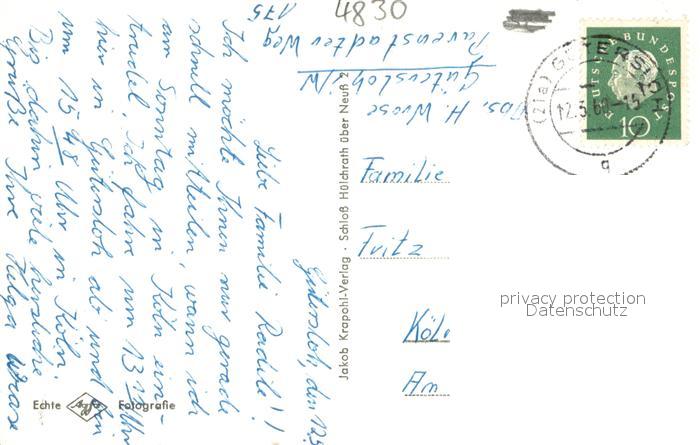 4830
Abs. H. Wrase
Gütersloh/W
Pavenstädter Weg
175
(21a) GÜTERSLOH
12.5.60
DEUTSCHE BUNDESPOST
10
Gütersloh, den 12.5.
Liebe Familie Radile!
Ich möchte Ihnen nur gerade
schnell mitteilen, wann ich
am Sonntag in Köln ein-
trudel. Ich fahre um 13 Uhr
hier in Gütersloh ab und bin
um 15 48 Uhr in Köln.
Bis dahin viele herzliche
Grüße Ihre Helga Wrase
Familie
Fritz
Köl
Am
Jakob Krapohl-Verlag · Schloß Hülchrath über Neuß 2
Echte Agfa Fotografie
privacy protection
Datenschutz